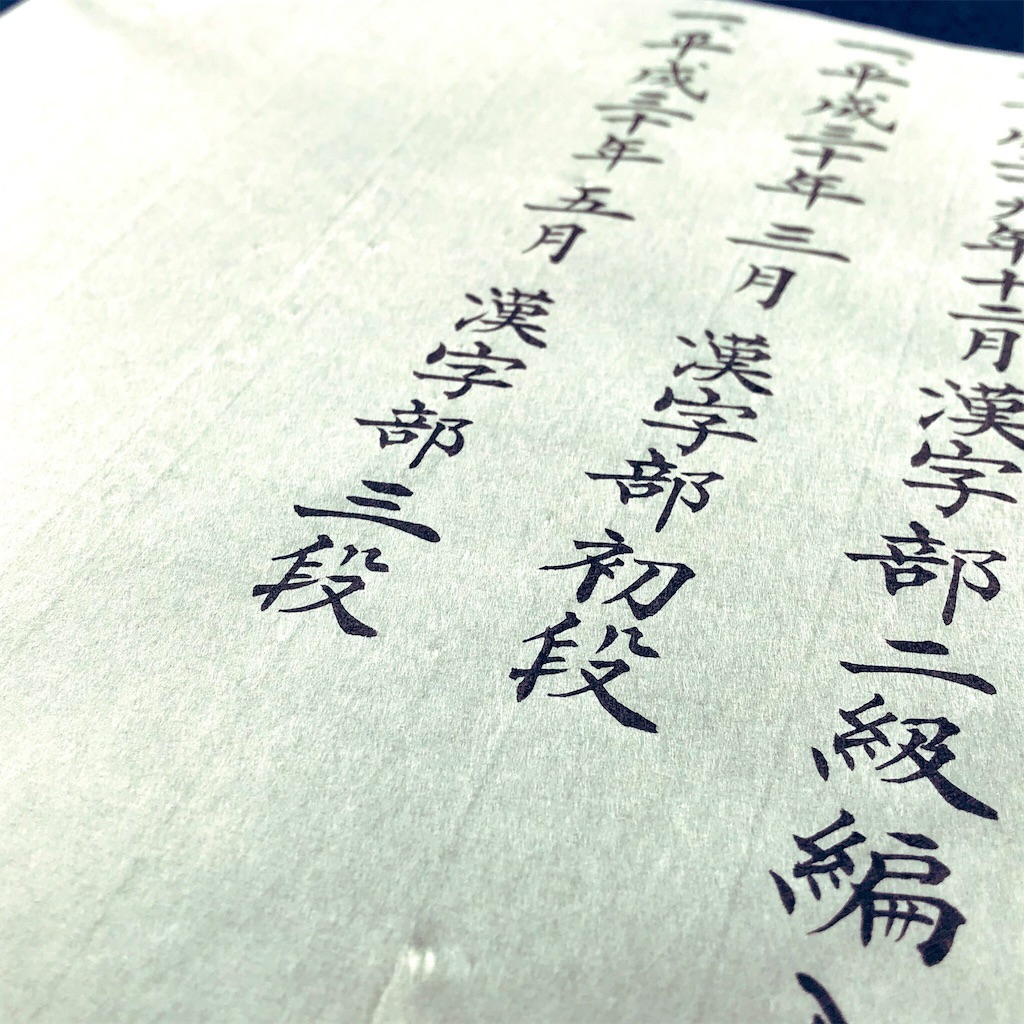 成二十九年十二月 漢字部二級編
一、平成三十年 三月 漢字部初段
一、平成三十年 五月 漢字部三段